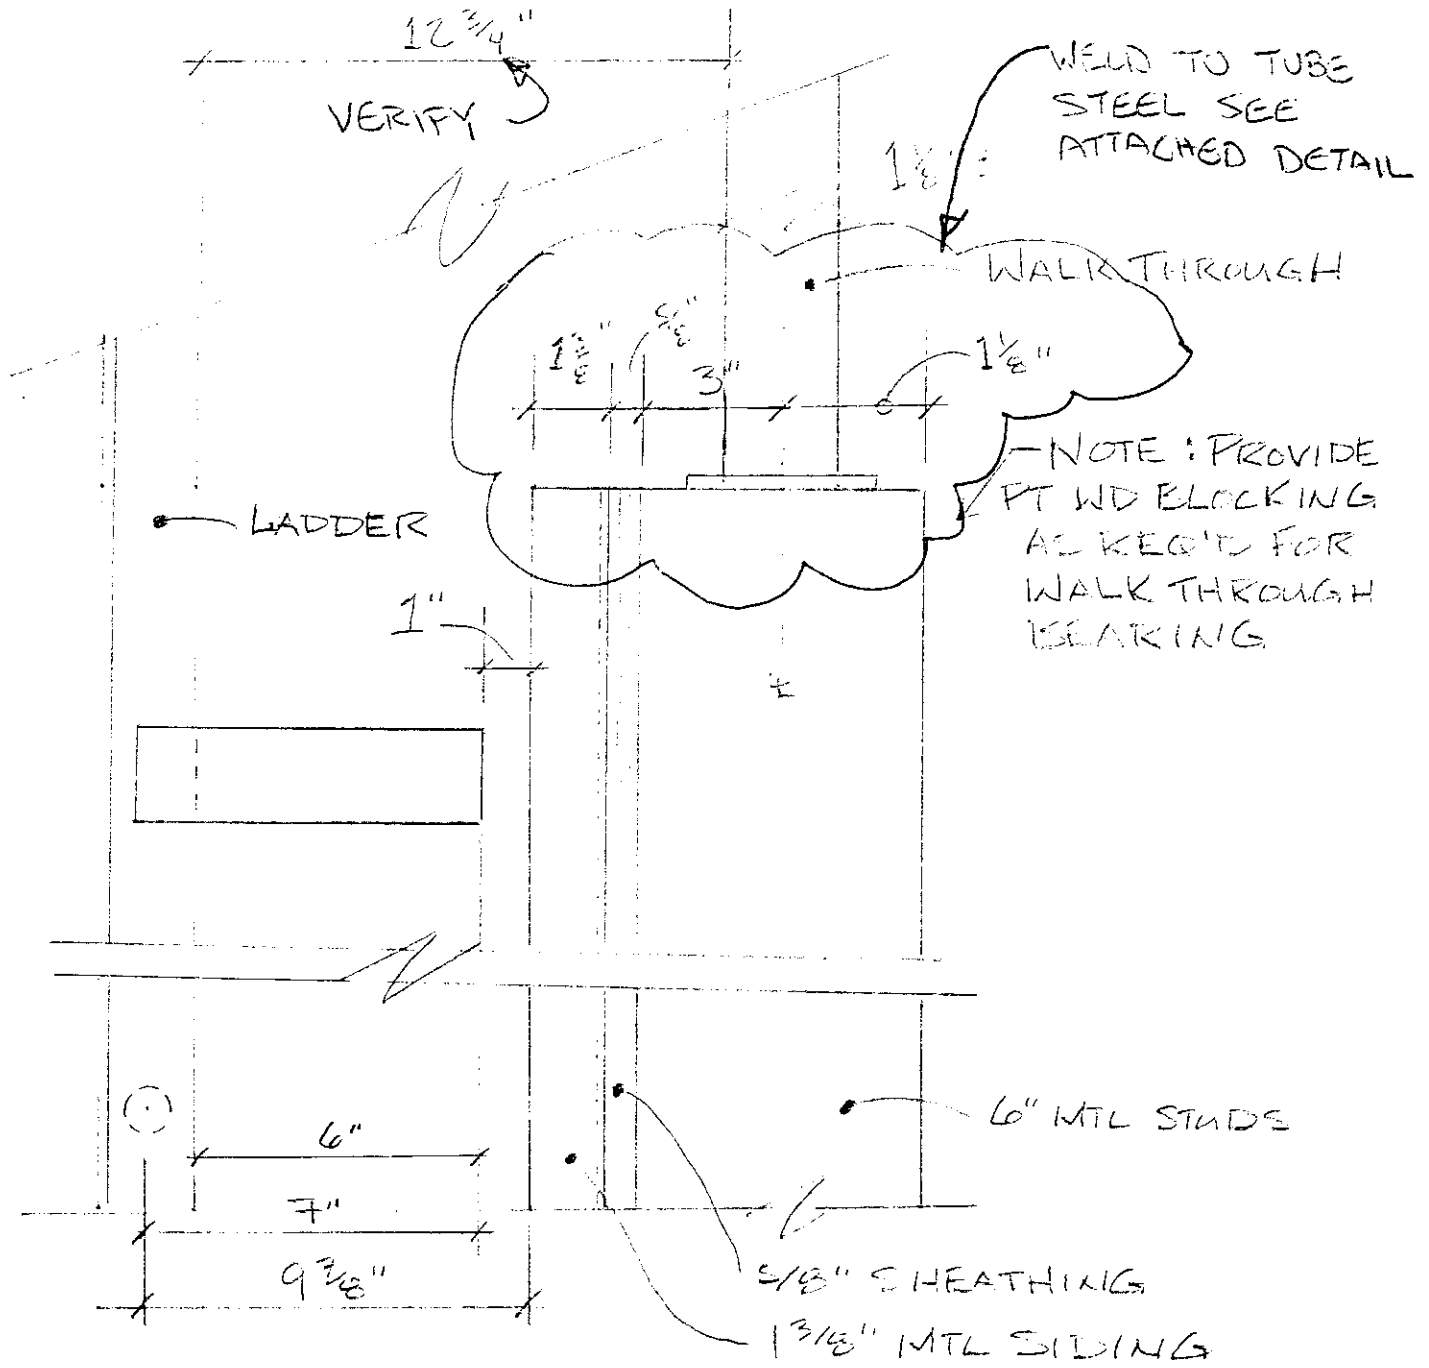 12 3/4"
VERIFY
WELD TO TUBE
STEEL SEE
ATTACHED DETAIL
1 1/8"
WALK THROUGH
1 3/8"
5/8"
3"
1 1/8"
LADDER
NOTE : PROVIDE
PT WD BLOCKING
AS REQ'D FOR
WALK THROUGH
BEARING
1"
6" MTL STUDS
6"
7"
9 3/8"
5/8" SHEATHING
1 3/8" MTL SIDING